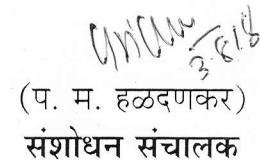 (प. म. हळदणकर)
संशोधन संचालक